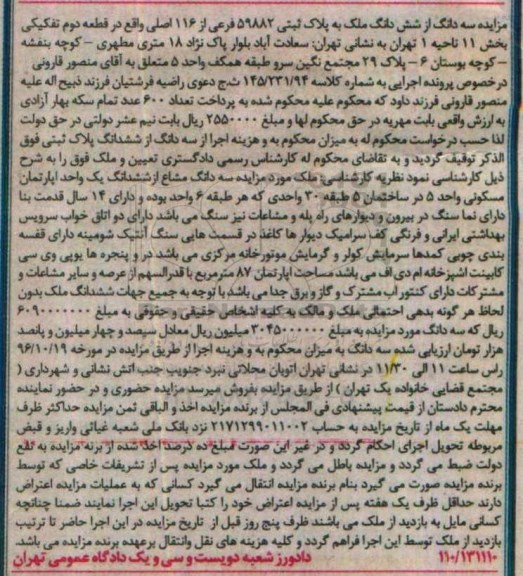 مزایده سه دانگ از شش دانگ ملک به پلاک ثبتی ۵۹۸۸۲ فرعی از ۱۱۶ اصلی واقع در قطعه دوم تفکیکی
بخش ۱۱ ناحیه ۱ تهران به نشانی تهران: سعادت آباد بلوار پاک نژاد ۱۸ متری مطهری – کوچه بنفشه
– کوچه بوستان ۶ – پلاک ۲۹ مجتمع نگین سرو طبقه همکف واحد ۵ متعلق به آقای منصور قارونی
درخصوص پرونده اجرایی به شماره کلاسه ۱۴۵/۲۳۱/۹۴ ش.ج دعوی راضیه فرشتیان فرزند ذبیح اله علیه
منصور قارونی فرزند داود که محکوم علیه محکوم شده به پرداخت تعداد ۶۰۰ عدد تمام سکه بهار آزادی
به ارزش واقعی بابت مهریه در حق محکوم لها و مبلغ ۲۵۵۰۰۰۰ ریال بابت نیم عشر دولتی در حق دولت
لذا حسب درخواست محکوم له به میزان محکوم به و هزینه اجرا از سه دانگ از ششدانگ پلاک ثبتی فوق
الذکر توقیف گردید و به تقاضای محکوم له کارشناس رسمی دادگستری تعیین و ملک فوق را به شرح
ذیل کارشناسی نمود نظریه کارشناسی: ملک مورد مزایده سه دانگ مشاع ازششدانگ یک واحد اپارتمان
مسکونی واحد ۵ در ساختمان ۵ طبقه ۳۰ واحدی که هر طبقه ۶ واحد بوده و دارای ۱۴ سال قدمت بنا
دارای نما سنگ در بیرون و دیوارهای راه پله و مشاعات نیز سنگ می باشد دارای دو اتاق خواب سرویس
بهداشتی ایرانی و فرنگی کف سرامیک دیوار ها کاغذ در قسمت هایی سنگ آنتیک شومینه دارای قفسه
بندی چوبی کمدها سرمایش کولر و گرمایش موتورخانه مرکزی می باشد در و پنجره ها یوپی وی سی
کابینت اشپزخانه ام دی اف می باشد مساحت اپارتمان ۸۷ مترمربع با قدرالسهم از عرصه و سایر مشاعات و
مشترکات دارای کنتور اب مشترک و گاز و برق جدا می باشد با توجه به جمیع جهات ششدانگ ملک بدون
لحاظ هر گونه بدهی احتمالی ملک و مالک به کلیه اشخاص حقیقی و حقوقی به مبلغ ۶۰۹۰۰۰۰۰۰۰
ریال که سه دانگ مورد مزایده به مبلغ ۳۰۴۵۰۰۰۰۰۰ میلیون ریال معادل سیصد و چهار میلیون و پانصد
هزار تومان ارزیابی شده سه دانگ به میزان محکوم به و هزینه اجرا از طریق مزایده در مورخه ۹۶/۱۰/۱۹
راس ساعت ۱۱ الی ۱۱/۳۰ در نشانی تهران اتوبان محلاتی نبرد جنوبی جنب اتش نشانی و شهرداری (
مجتمع قضایی خانواده یک تهران ) از طریق مزایده بفروش میرسد مزایده حضوری و در حضور نماینده
محترم دادستان از قیمت پیشنهادی فی المجلس از برنده مزایده اخذ و الباقی ثمن مزایده حداکثر ظرف
مهلت یک ماه از تاریخ مزایده به حساب ۲۱۷۱۲۹۹۰۱۱۰۰۲ نزد بانک ملی شعبه غیاثی واریز و قبض
مربوطه تحویل اجرای احکام گردد و در غیر این صورت مبلغ ده درصد اخذ شده از برنه مزایده به نفع
دولت ضبط می گردد و مزایده باطل می گردد و ملک مورد مزایده پس از تشریفات خاصی که توسط
برنده مزایده صورت می گیرد بنام برنده مزایده انتقال می گیرد کسانی که به عملیات مزایده اعتراض
دارند حداقل ظرف یک هفته پس از مزایده اعتراض خود را کتبا تحویل این اجرا نمایند ضمنا چنانچه
کسانی مایل به بازدید از ملک می باشند ظرف پنج روز قبل از تاریخ مزایده در این اجرا حاضر تا ترتیب
بازدید از ملک توسط این اجرا فراهم گردد و کلیه هزینه های نقل وانتقال برعهده برنده مزایده می باشد.
۱۱۰/۱۳۱۱۱۰ دادورز شعبه دویست و سی و یک دادگاه عمومی تهران